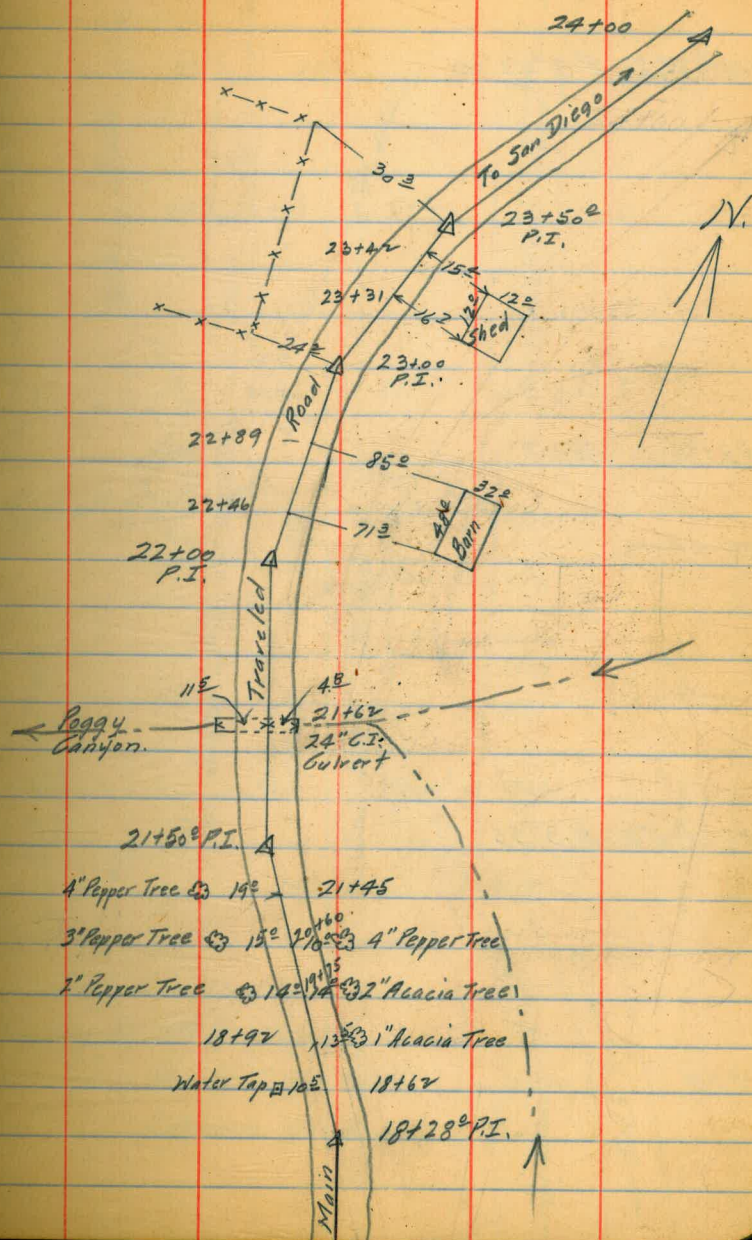 24+00
To San Diego
N.
30 3
23+50 0
P.I.
23+42
15 0
23+31
16 2
12 0
12 0
Shed
23+00
P.I.
Road
22+89
85 0
32 0
22+46
71 3
48 0
Barn
22+00
P.I.
Traveled
11 5
4 8
Poggy
Canyon.
21+62
24" C.I.
Culvert
21+50 0 P.I.
4" Pepper Tree 19 0 21+45
3" Pepper Tree 15 0 20+60 10 0 4" Pepper Tree
2" Pepper Tree 14 0 19+75 14 0 2" Acacia Tree
18+92 13 5 1" Acacia Tree
Water Tap 10 5 18+62
18+28 0 P.I.
Main